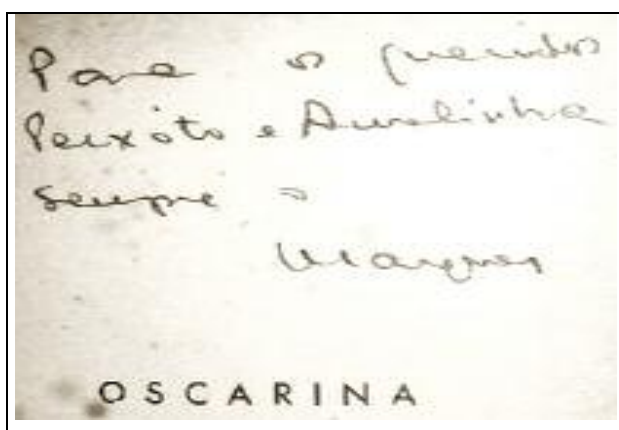 Para os queridos
Peixôto e Amelinha
sempre o
Marques
OSCARINA